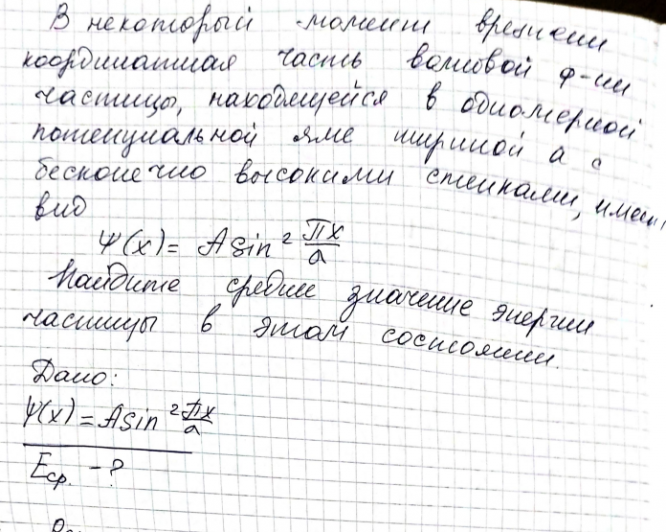 В некоторый момент времени
координатная часть волновой ф-ии
частицы, находящейся в одномерной
потенциальной яме шириной a с
бесконечно высокими стенками, имеет
вид
Ψ(x) = A sin² πx/a
Найдите среднее значение энергии
частицы в этом состоянии.
Дано:
Ψ(x) = A sin² πx/a
Eср. - ?